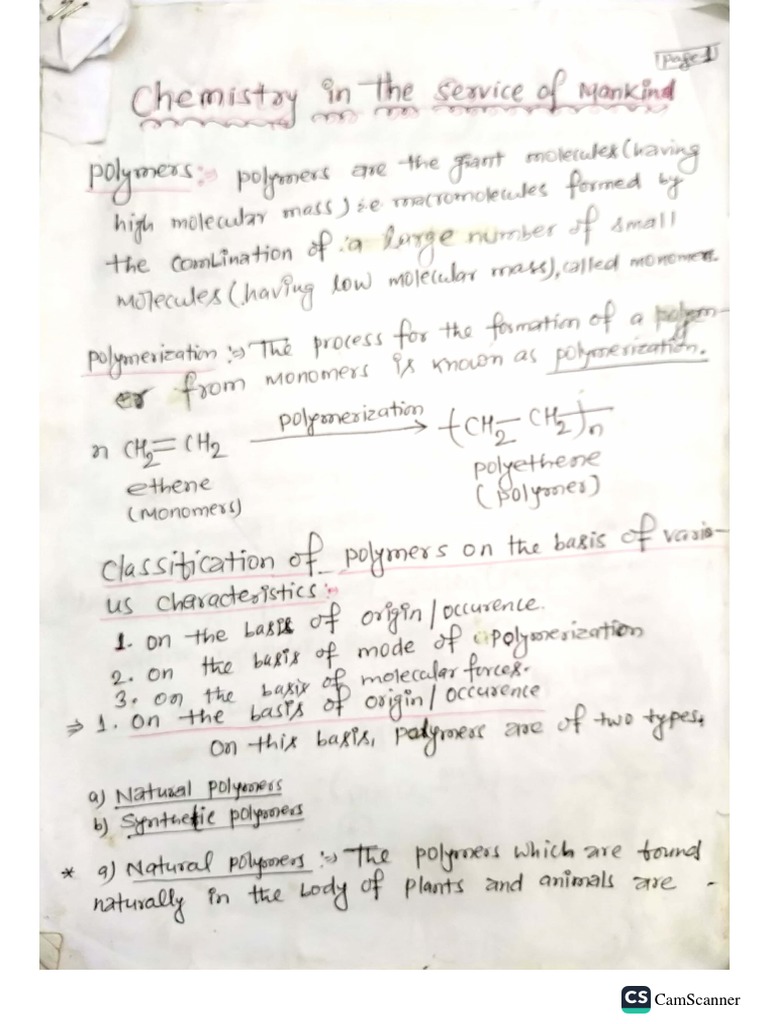 page-1
Chemistry in the service of Mankind
polymers:- polymers are the giant molecules (having
high molecular mass) i.e macromolecules formed by
the combination of a large number of small
molecules (having low molecular mass), called monomers.
polymerization :- The process for the formation of a polym-
er from monomers is known as polymerization.
n CH2=CH2 polymerization → (CH2-CH2)n
ethene polyethene
(Monomers) (polymer)
Classification of polymers on the basis of vario-
us characteristics:-
1. on the basis of origin/occurence.
2. on the basis of mode of polymerization
3. on the basis of molecular forces.
⇒ 1. On the basis of origin/occurence
On this basis, polymers are of two types.
a) Natural polymers
b) Synthetic polymers
* a) Natural polymers :- The polymers which are found
naturally in the body of plants and animals are -
CS CamScanner